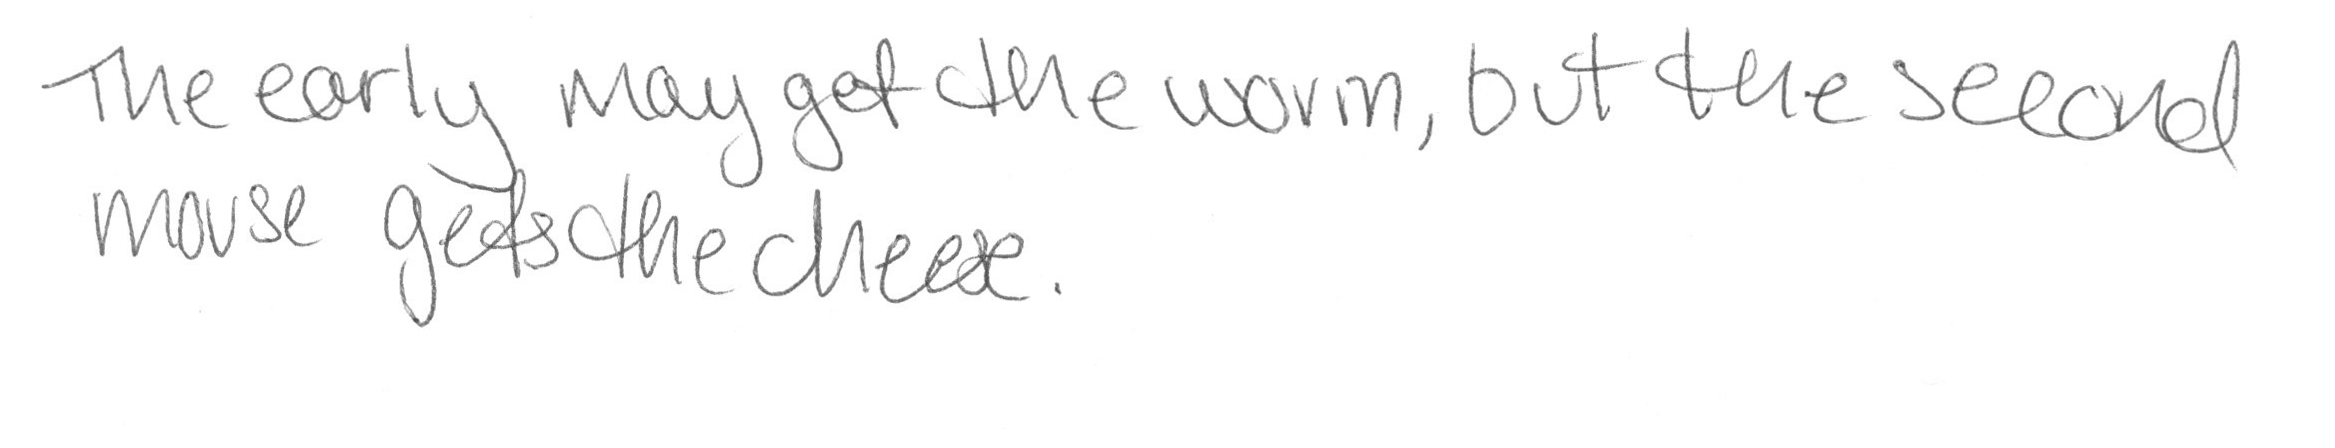 The early may get the worm, but the second
mouse gets the cheese.